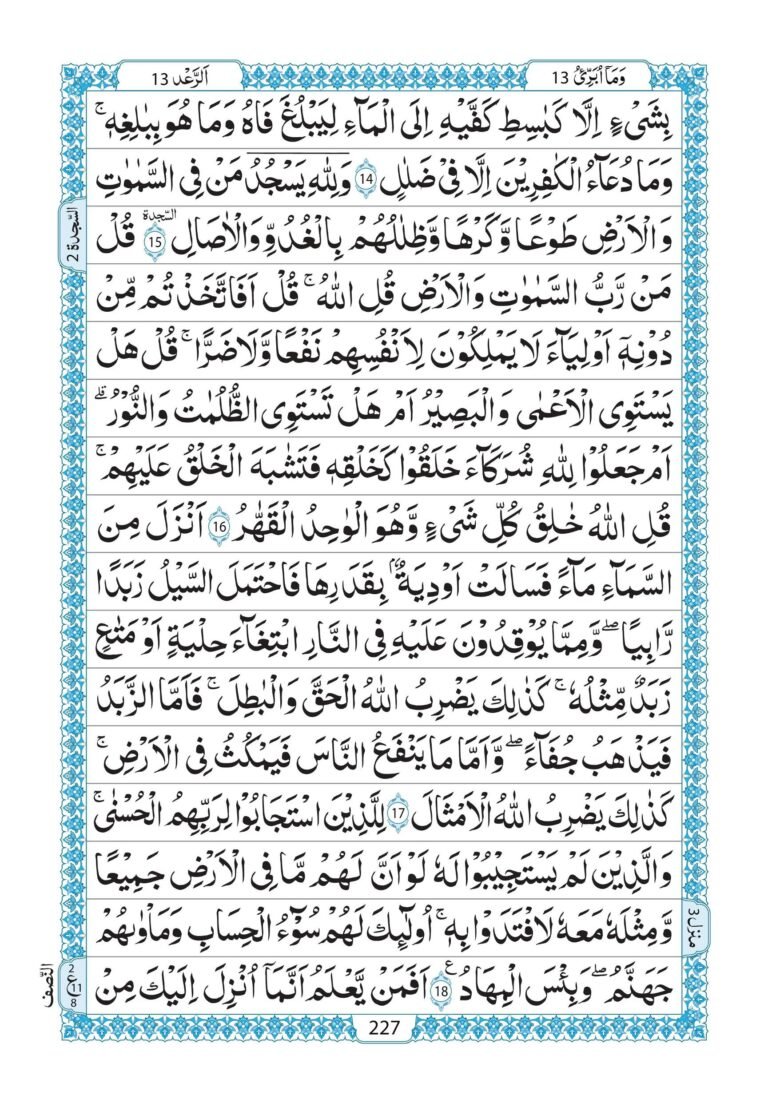 وَمَاۤ اُبَرِّئُ 13
اَلرَّعْد 13
بِشَیْءٍ اِلَّا كَبَاسِطِ كَفَّیْهِ اِلَى الْمَآءِ لِیَبْلُغَ فَاهُ وَمَا هُوَ بِبَالِغِهٖ ۚ
وَمَا دُعَآءُ الْكٰفِرِیْنَ اِلَّا فِیْ ضَلٰلٍ 14 وَلِلّٰهِ یَسْجُدُ مَنْ فِی السَّمٰوٰتِ
وَالْاَرْضِ طَوْعًا وَّكَرْهًا وَّظِلٰلُهُمْ بِالْغُدُوِّ وَالْاٰصَالِ السّجدة 15 قُلْ
مَنْ رَّبُّ السَّمٰوٰتِ وَالْاَرْضِ قُلِ اللّٰهُ ۚ قُلْ اَفَاتَّخَذْتُمْ مِّنْ
دُوْنِهٖۤ اَوْلِیَآءَ لَا یَمْلِكُوْنَ لِاَنْفُسِهِمْ نَفْعًا وَّلَا ضَرًّا ۚ قُلْ هَلْ
یَسْتَوِی الْاَعْمٰى وَالْبَصِیْرُ اَمْ هَلْ تَسْتَوِی الظُّلُمٰتُ وَالنُّوْرُ ۚ۬
اَمْ جَعَلُوْا لِلّٰهِ شُرَكَآءَ خَلَقُوْا كَخَلْقِهٖ فَتَشَابَهَ الْخَلْقُ عَلَیْهِمْ ۚ
قُلِ اللّٰهُ خٰلِقُ كُلِّ شَیْءٍ وَّهُوَ الْوٰحِدُ الْقَهّٰرُ 16 اَنْزَلَ مِنَ
السَّمَآءِ مَآءً فَسَالَتْ اَوْدِیَةٌۢ بِقَدَرِهَا فَاحْتَمَلَ السَّیْلُ زَبَدًا
رَّابِیًا ؕ وَمِمَّا یُوْقِدُوْنَ عَلَیْهِ فِی النَّارِ ابْتِغَآءَ حِلْیَةٍ اَوْ مَتٰعٍ
زَبَدٌ مِّثْلُهٗ ۚ كَذٰلِكَ یَضْرِبُ اللّٰهُ الْحَقَّ وَالْبٰطِلَ ۚ فَاَمَّا الزَّبَدُ
فَیَذْهَبُ جُفَآءً ۖ وَاَمَّا مَا یَنْفَعُ النَّاسَ فَیَمْكُثُ فِی الْاَرْضِ ۚ
كَذٰلِكَ یَضْرِبُ اللّٰهُ الْاَمْثَالَ 17 لِلَّذِیْنَ اسْتَجَابُوْا لِرَبِّهِمُ الْحُسْنٰى ۚ
وَالَّذِیْنَ لَمْ یَسْتَجِیْبُوْا لَهٗ لَوْ اَنَّ لَهُمْ مَّا فِی الْاَرْضِ جَمِیْعًا
وَّمِثْلَهٗ مَعَهٗ لَافْتَدَوْا بِهٖ ۚ اُولٰٓئِكَ لَهُمْ سُوْٓءُ الْحِسَابِ وَمَاْوٰىهُمْ
جَهَنَّمُ ۖ وَبِئْسَ الْمِهَادُ ع 18 اَفَمَنْ یَّعْلَمُ اَنَّمَاۤ اُنْزِلَ اِلَیْكَ مِنْ
السّجدة 2
منزل 3
2 ع 11 8
النّصف
227